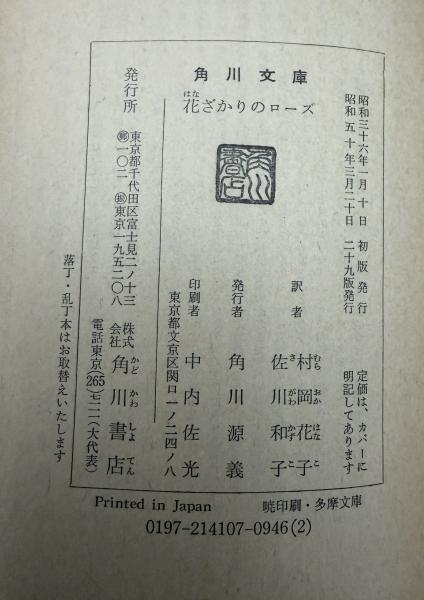 角川文庫
花ざかりのローズ
はな
昭和三十六年一月十日 初版発行
昭和五十年三月二十日 二十九版発行
定価は、カバーに
明記してあります
訳者 村岡花子
むら おか はな こ
佐川和子
さ がわ かず こ
発行者 角川源義
印刷者 中内佐光
東京都文京区関口一ノ二四ノ八
発行所
東京都千代田区富士見二ノ十三
郵一〇二 振東京一九五二〇八
株式会社 角川書店
かど かわ しよ てん
電話東京(265)七一一一(大代表)
落丁・乱丁本はお取替えいたします
Printed in Japan 暁印刷・多摩文庫
0197-214107-0946(2)